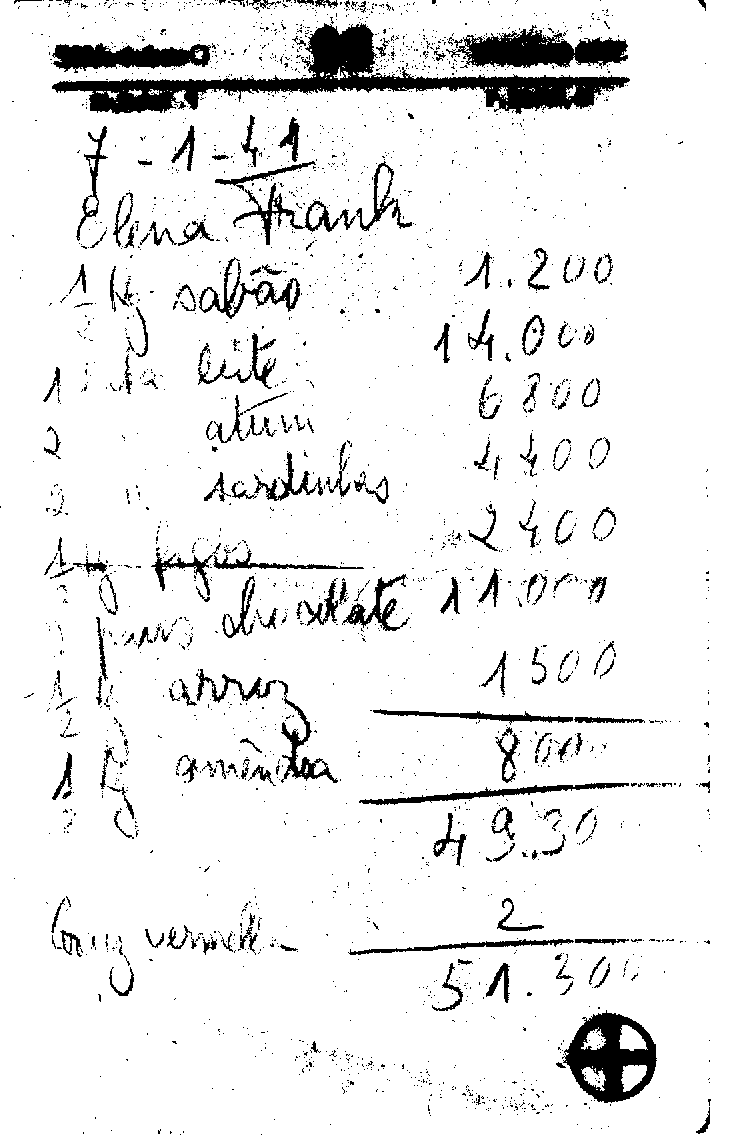 7-1-41
Elena Frank
1/2 Kg sabão 1.200
1 lata leite 14.000
2 " atum 6 800
2 " sardinhas 4 400
1/2 Kg figos 2 400
chocolate 11.000
1/2 Kg arroz 1 500
1/2 Kg amêndoa 800
49.30
Cruz vermelh 2
51.300